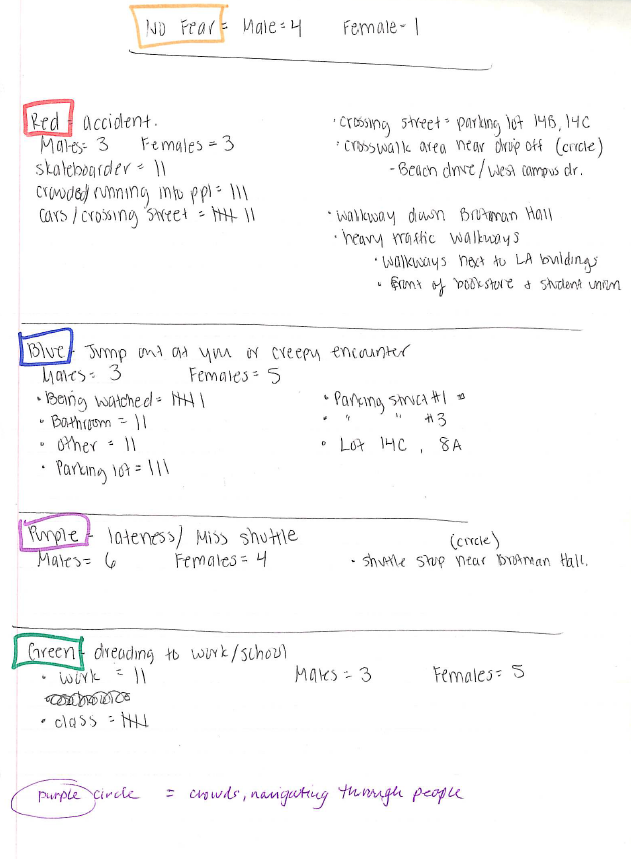 No Fear = Male = 4 Female - 1
Red - accident.
Males = 3 Females = 3
skateboarder = II
crowded running into ppl = III
cars / crossing street = IIII II
• crossing street = parking lot 14B, 14C
• crosswalk area near drop off (circle)
- Beach drive / West campus dr.
• walkway down Brotman Hall
• heavy traffic walkways
• walkways next to LA buildings
• front of bookstore & student union
Blue - Jump out at you or creepy encounter
Males = 3 Females = 5
• Being watched = IIII I
• Bathroom = II
• other = II
• Parking lot = III
• Parking struct #1
• " " #3
• Lot 14C, 8A
Purple - lateness / Miss shuttle
Males = 6 Females = 4
(circle)
• shuttle stop near Brotman Hall.
Green - dreading to work/school
• work = II Males = 3 Females = 5
• class = IIII
purple circle = crowds, navigating through people